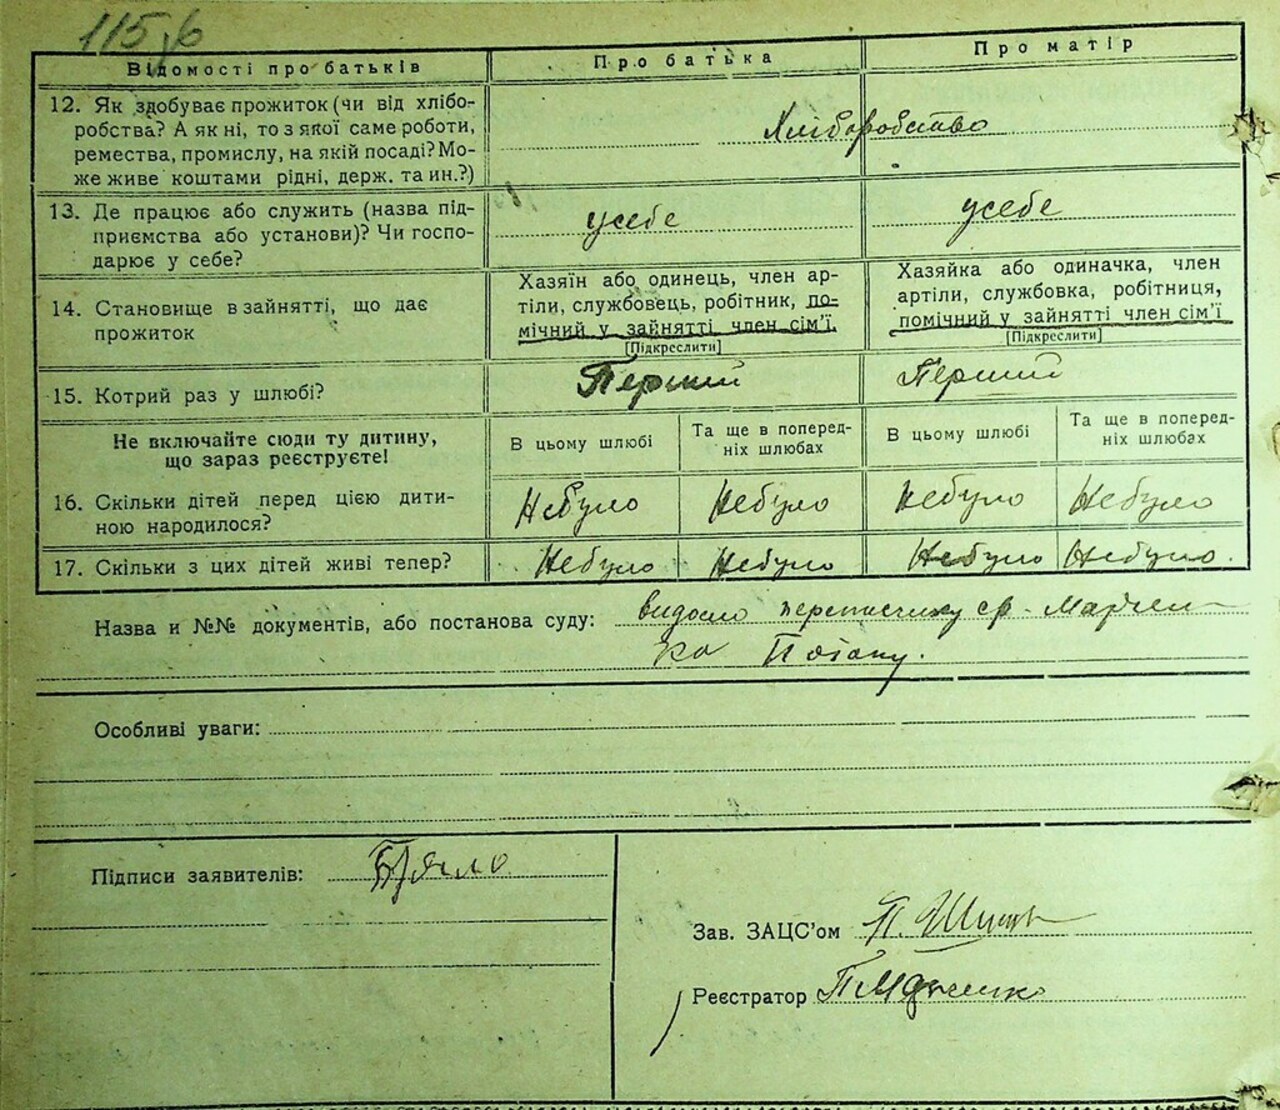 115
Відомості про батьків
Про батька
Про матір
12. Як здобуває прожиток (чи від хлібо-
робства? А як ні, то з якої саме роботи,
ремества, промислу, на якій посаді? Мо-
же живе коштами рідні, держ. та ин.?)
Хліборобство
13. Де працює або служить (назва під-
приємства або установи)? Чи госпо-
дарює у себе?
усебе
усебе
14. Становище в зайнятті, що дає
прожиток
Хазяїн або одинець, член ар-
тіли, службовець, робітник, по-
мічний у зайнятті член сім'ї.
[Підкреслити]
Хазяйка або одиначка, член
артіли, службовка, робітниця,
помічний у зайнятті член сім'ї
[Підкреслити]
15. Котрий раз у шлюбі?
Перший
Перший
Не включайте сюди ту дитину,
що зараз реєструєте!
В цьому шлюбі
Та ще в поперед-
ніх шлюбах
В цьому шлюбі
Та ще в поперед-
ніх шлюбах
16. Скільки дітей перед цією дити-
ною народилося?
Небуло
Небуло
Небуло
Небуло
17. Скільки з цих дітей живі тепер?
Небуло
Небуло
Небуло
Небуло.
Назва и №№ документів, або постанова суду:
Особливі уваги:
Підписи заявителів:
Зав. ЗАЦС'ом
Реєстратор